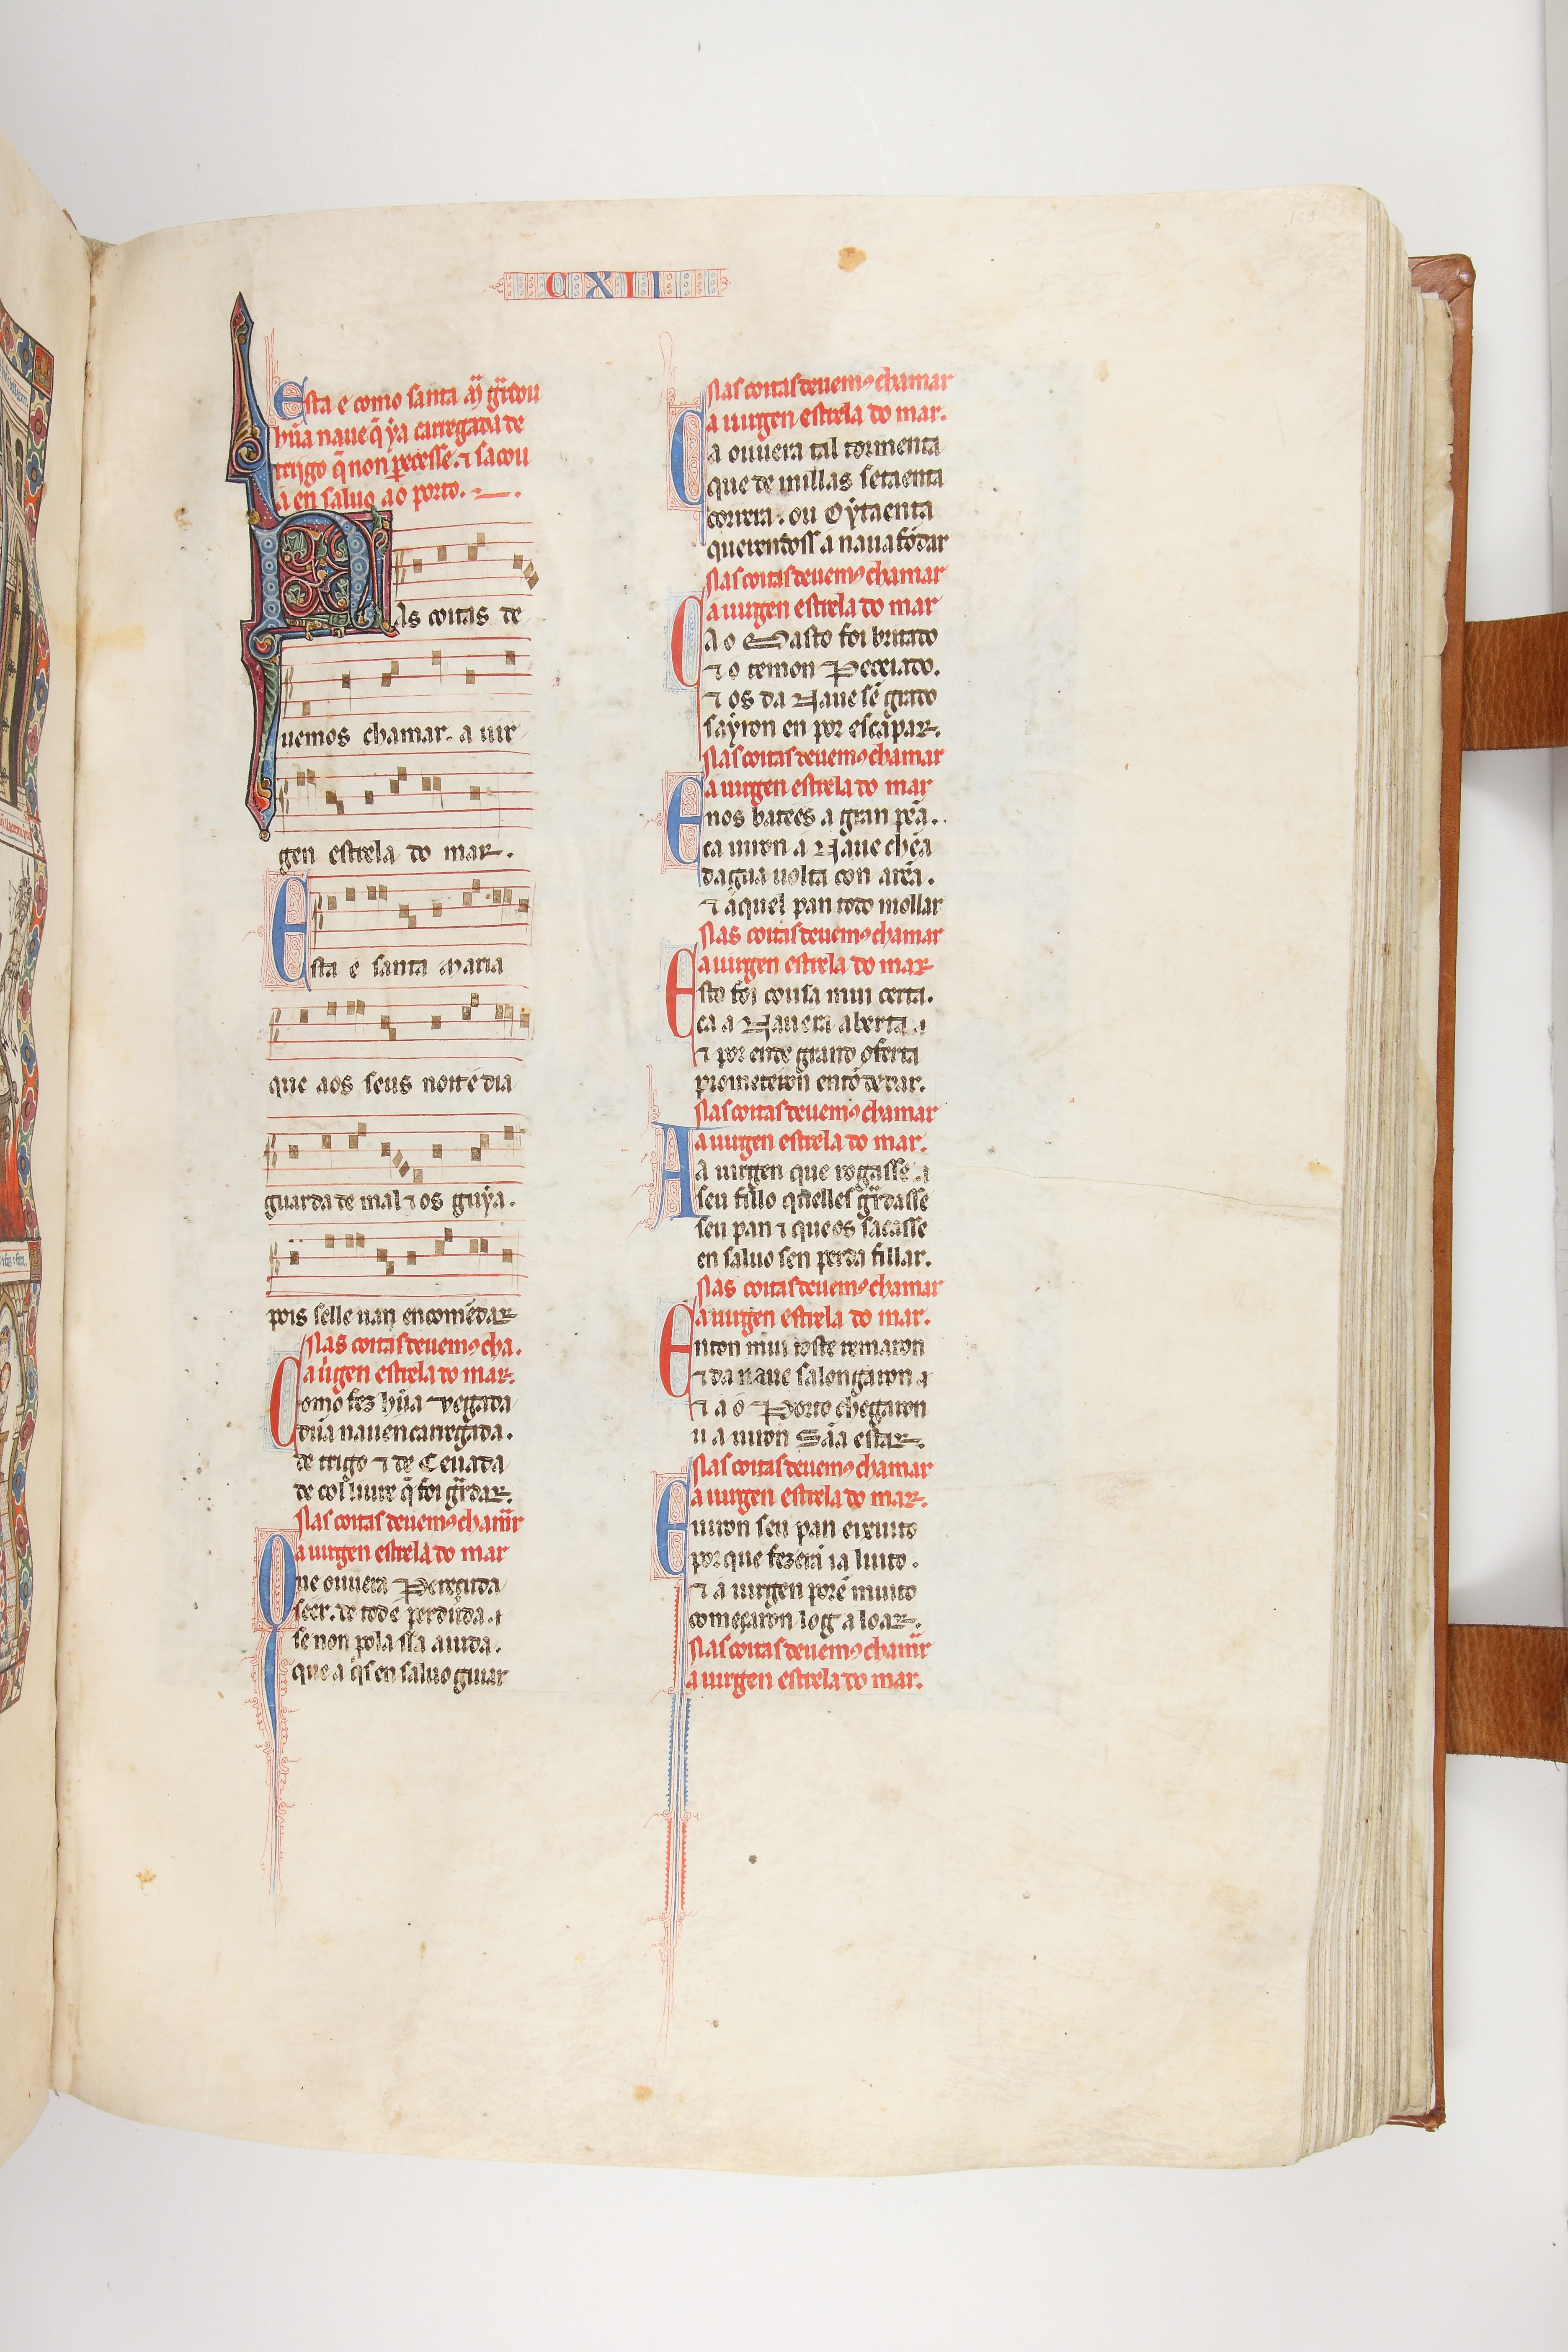 CXII
Esta e como santa Mª guardou
hũa naue q̃ ya carregada de
trigo q̃ non perecesse. ⁊ sacou
a en saluo ao porto.
Nas coitas de
uemos chamar. a uir
gen estrela do mar.
Esta e santa Maria
que aos seus noit e dia
guarda de mal ⁊ os guýa.
pois sselle uan encomẽdar
Nas coitas deuemꝰ cha.
a uirgen estrela do mar.
Como fez hũa vegada
dũa nau encarregada.
de trigo ⁊ de Ceuada
que ouuera Perecuda
seer. de tod e perdúda.
se non pola ssa aiuda.
que a q̇s en saluo guiar
Nas coitas deuemꝰ chamar
a uirgen estrela do mar.
Ca ouuera tal tormenta
que de millas setaenta
correra. ou Oýtaenta
querendoss a naua fõdar
Nas coitas deuemꝰ chamar
a uirgen estrela do mar
Ca o Masto foi britado
⁊ o temon Peceiado.
⁊ os da Naue sẽ grado
saýron en por escapar.
Nas coitas deuemꝰ chamar
a uirgen estrela do mar
Enos batees a gran pẽa.
ca uiron a Naue chẽa
dagua uolta con arẽa.
⁊ aquel pan todo mollar
Nas coitas deuemꝰ chamar
a uirgen estrela do mar
Esto foi cousa mui certa.
ca a Naue era aberta
⁊ por ende grand oferta
prometeron entõ de dar.
Nas coitas deuemꝰ chamar
a uirgen estrela do mar.
Aa uirgen que rogasse
seu fillo quelles grdasse
seu pan ⁊ que os sacasse
en saluo sen perda fillar.
Nas coitas deuemꝰ chamar
a uirgen estrela do mar.
Enton mui toste remaron
⁊ da naue salongaron
⁊ a o Porto chegaron
u a uiron Sãa estar.
Nas coitas deuemꝰ chamar
a uirgen estrela do mar.
E uiron seu pan eixuito
por que fezerã ia luito.
⁊ a uirgen porẽ muito
começaron log a loar.
Nas coitas deuemꝰ chamar
a uirgen estrela do mar.